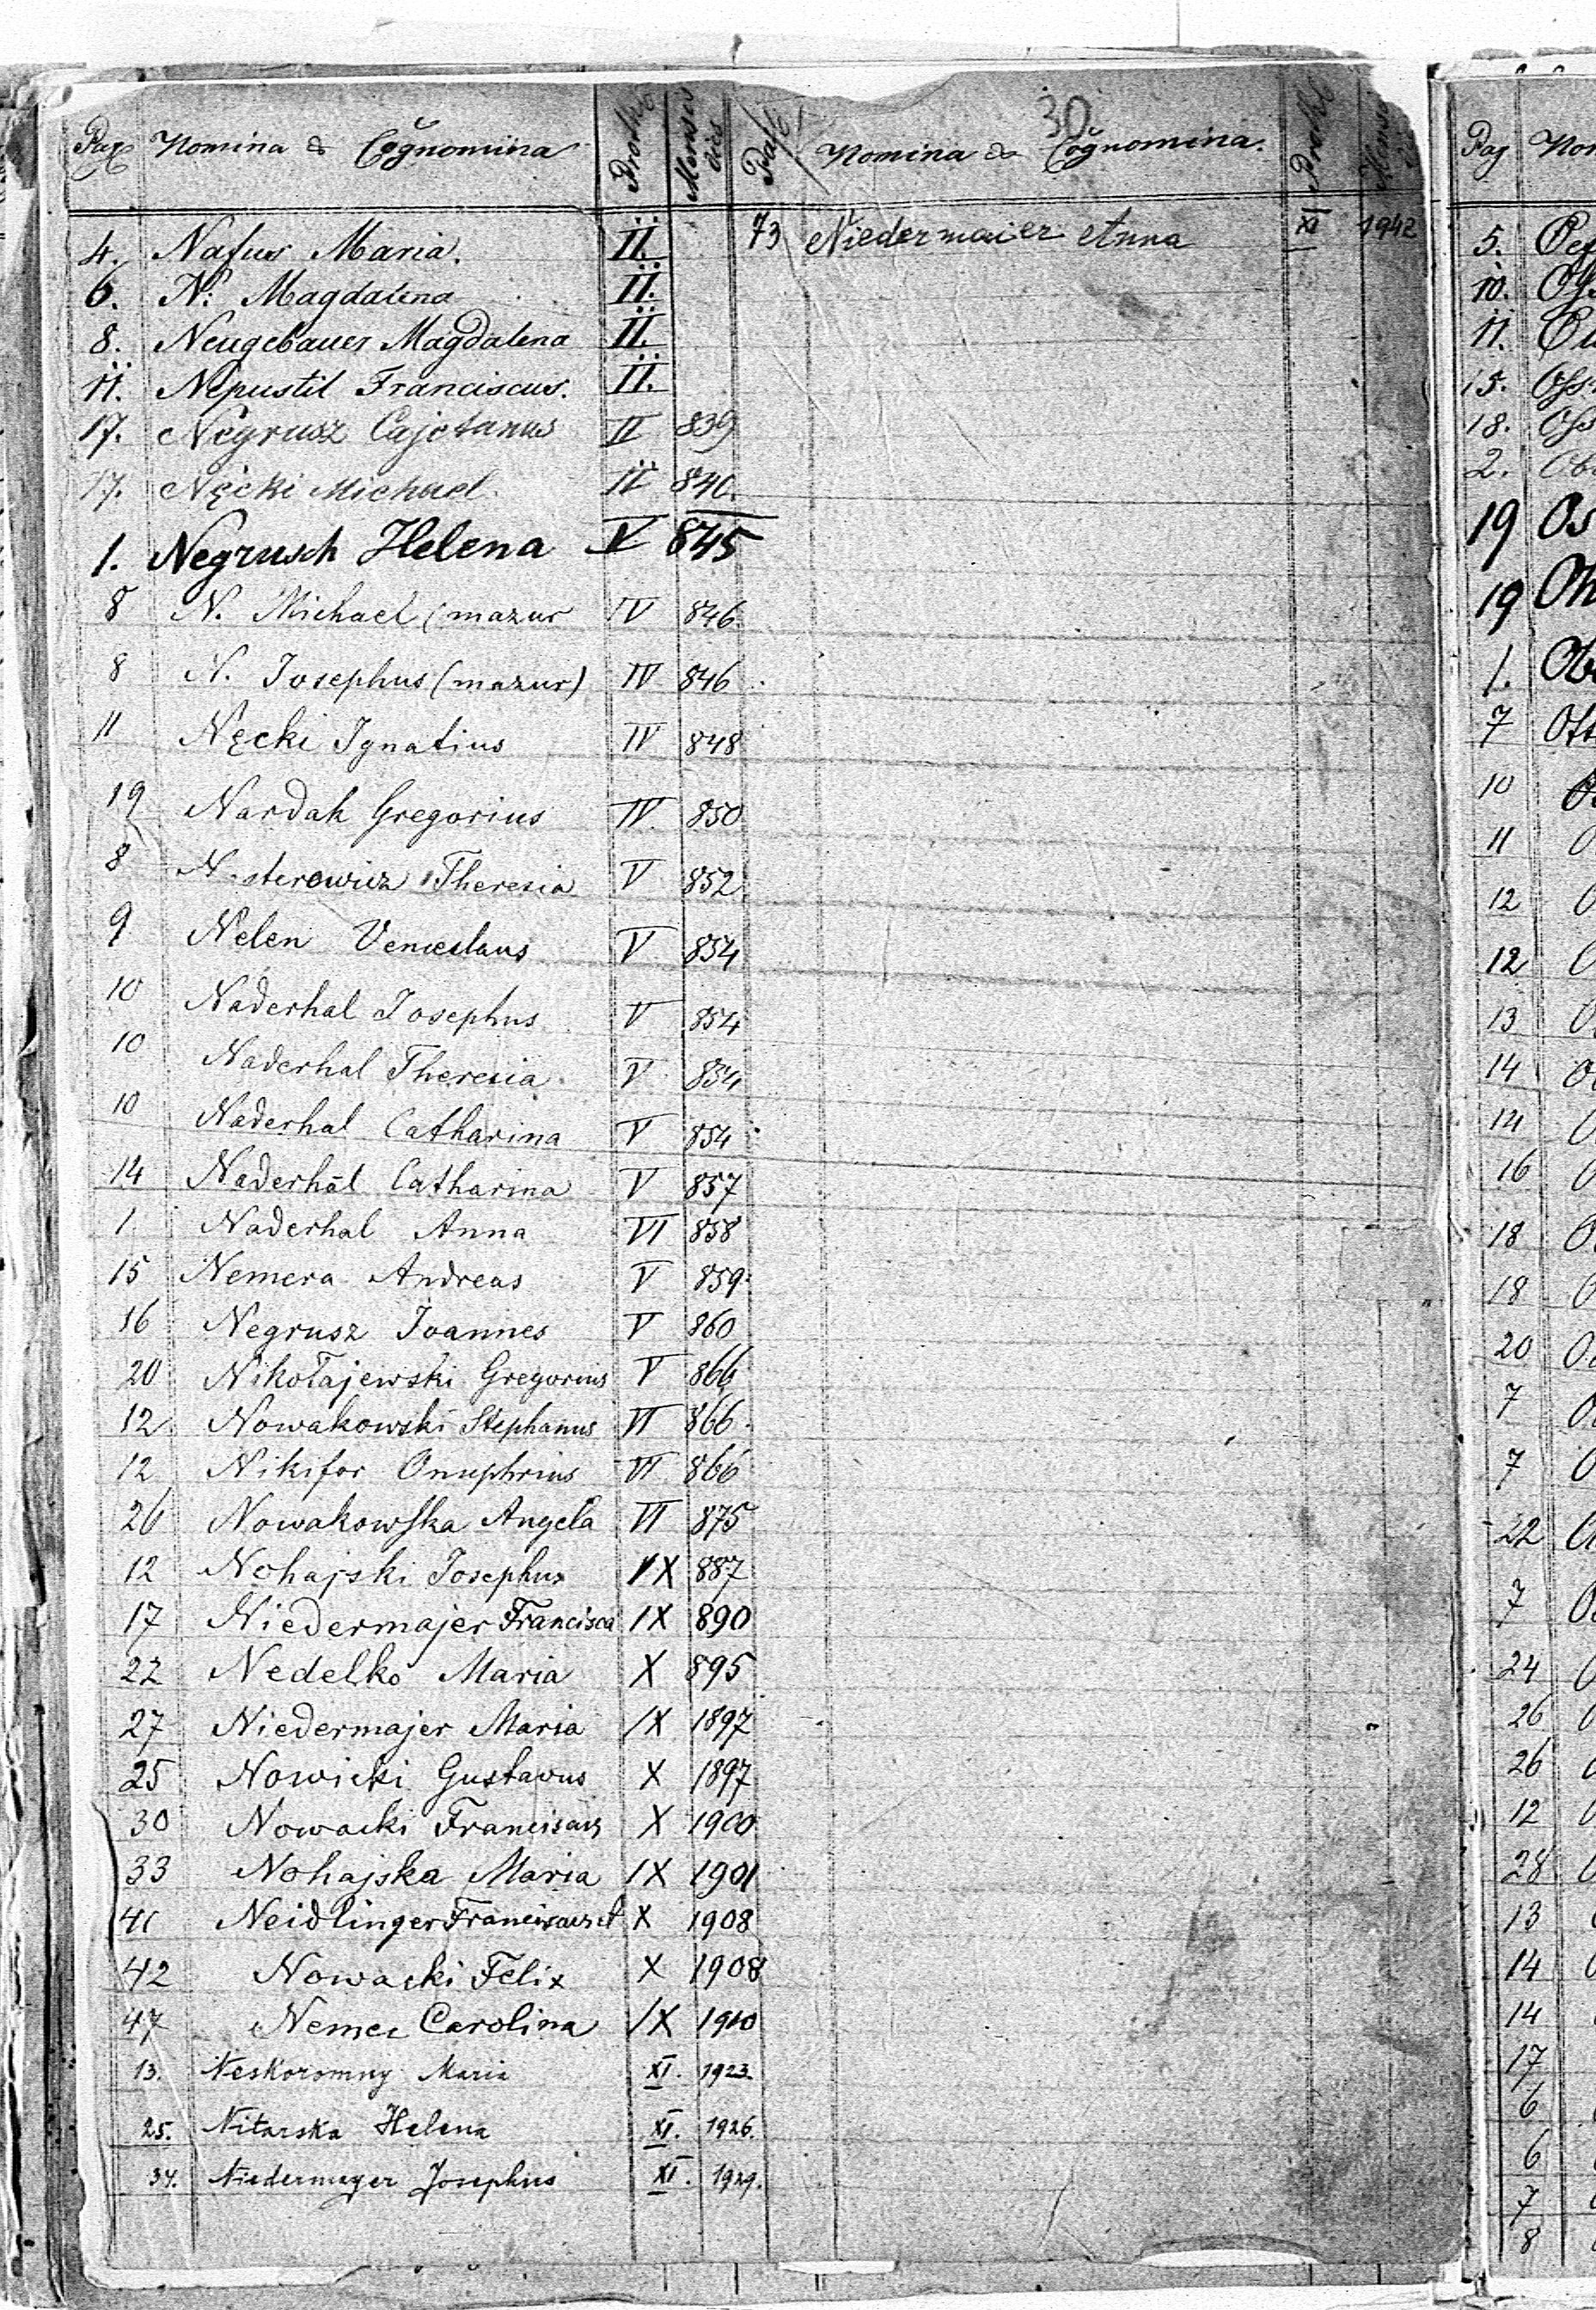 Pag Nomina & Cognomina
4. Nafus Maria. II.
6. N. Magdalena II.
8. Neugebauer Magdalena II.
11. Nepustil Franciscus. II.
17. Negrusz Cajetanus II 839
17. Nęcki Michael II 840.
1. Negrusch Helena V 845
8 N. Michael (mazur IV 846.
8 N. Josephus (mazur) IV 846
11 Nęcki Ignatius IV 848
19 Nardak Gregorius IV 850
8 Theresia V 852
9 Nelen Venceslaus V 854
10 Naderhal Josephus V 854
10 Naderhal Theresia V 854
10 Naderhal Catharina V 854
14 Naderhal Catharina V 857
1 Naderhal Anna VI 858
15 Nemera Andreas V 859
16 Negrusz Joannes V 860
20 Nikołajewski Gregorius V 866
12 Nowakowski Stephanus VI 866
12 Nikifor Onuphrius VI 866
26 Nowakowska Angela VI 875
12 Nohajski Josephus IX 887
17 Niedermajer Francisca IX 890
22 Nedelko Maria X 895
27 Niedermajer Maria IX 1897
25 Nowicki Gustavus X 1897
30 Nowacki Franciscus X 1900
33 Nohajska Maria IX 1901
41 Neidlinger Franciscus X 1908
42 Nowacki Felix X 1908
47 Nemec Carolina IX 1910
13. Neskoromny Maria XI. 1923.
25. Nitarska Helena XI. 1926.
34. Niedermayer Josephus XI. 1929.
30
Pag Nomina & Cognomina.
73 Niedermaier Anna XI 1942
Pag
5.
10.
11.
15.
18.
2.
19
19
1.
7
10
11
12
12
13
14
14
16
18
18
20
7
7
22
7
24
26
26
12
28
13
14
14
17
6
6
7
8